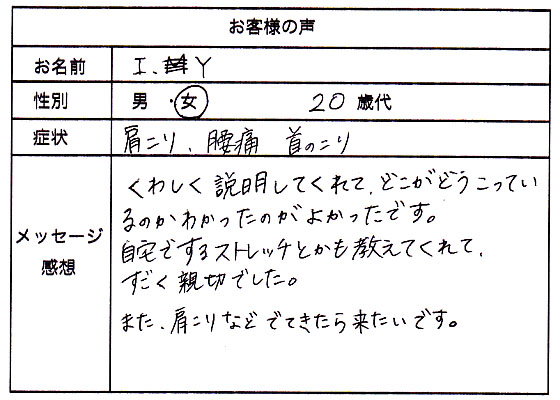 お客様の声
お名前 I. Y
性別 男・女 20歳代
症状 肩こり、腰痛 首のこり
メッセージ
感想
くわしく説明してくれて、どこがどうこってい
るのかわかったのがよかったです。
自宅でするストレッチとかも教えてくれて、
すごく親切でした。
また、肩こりなどでてきたら来たいです。